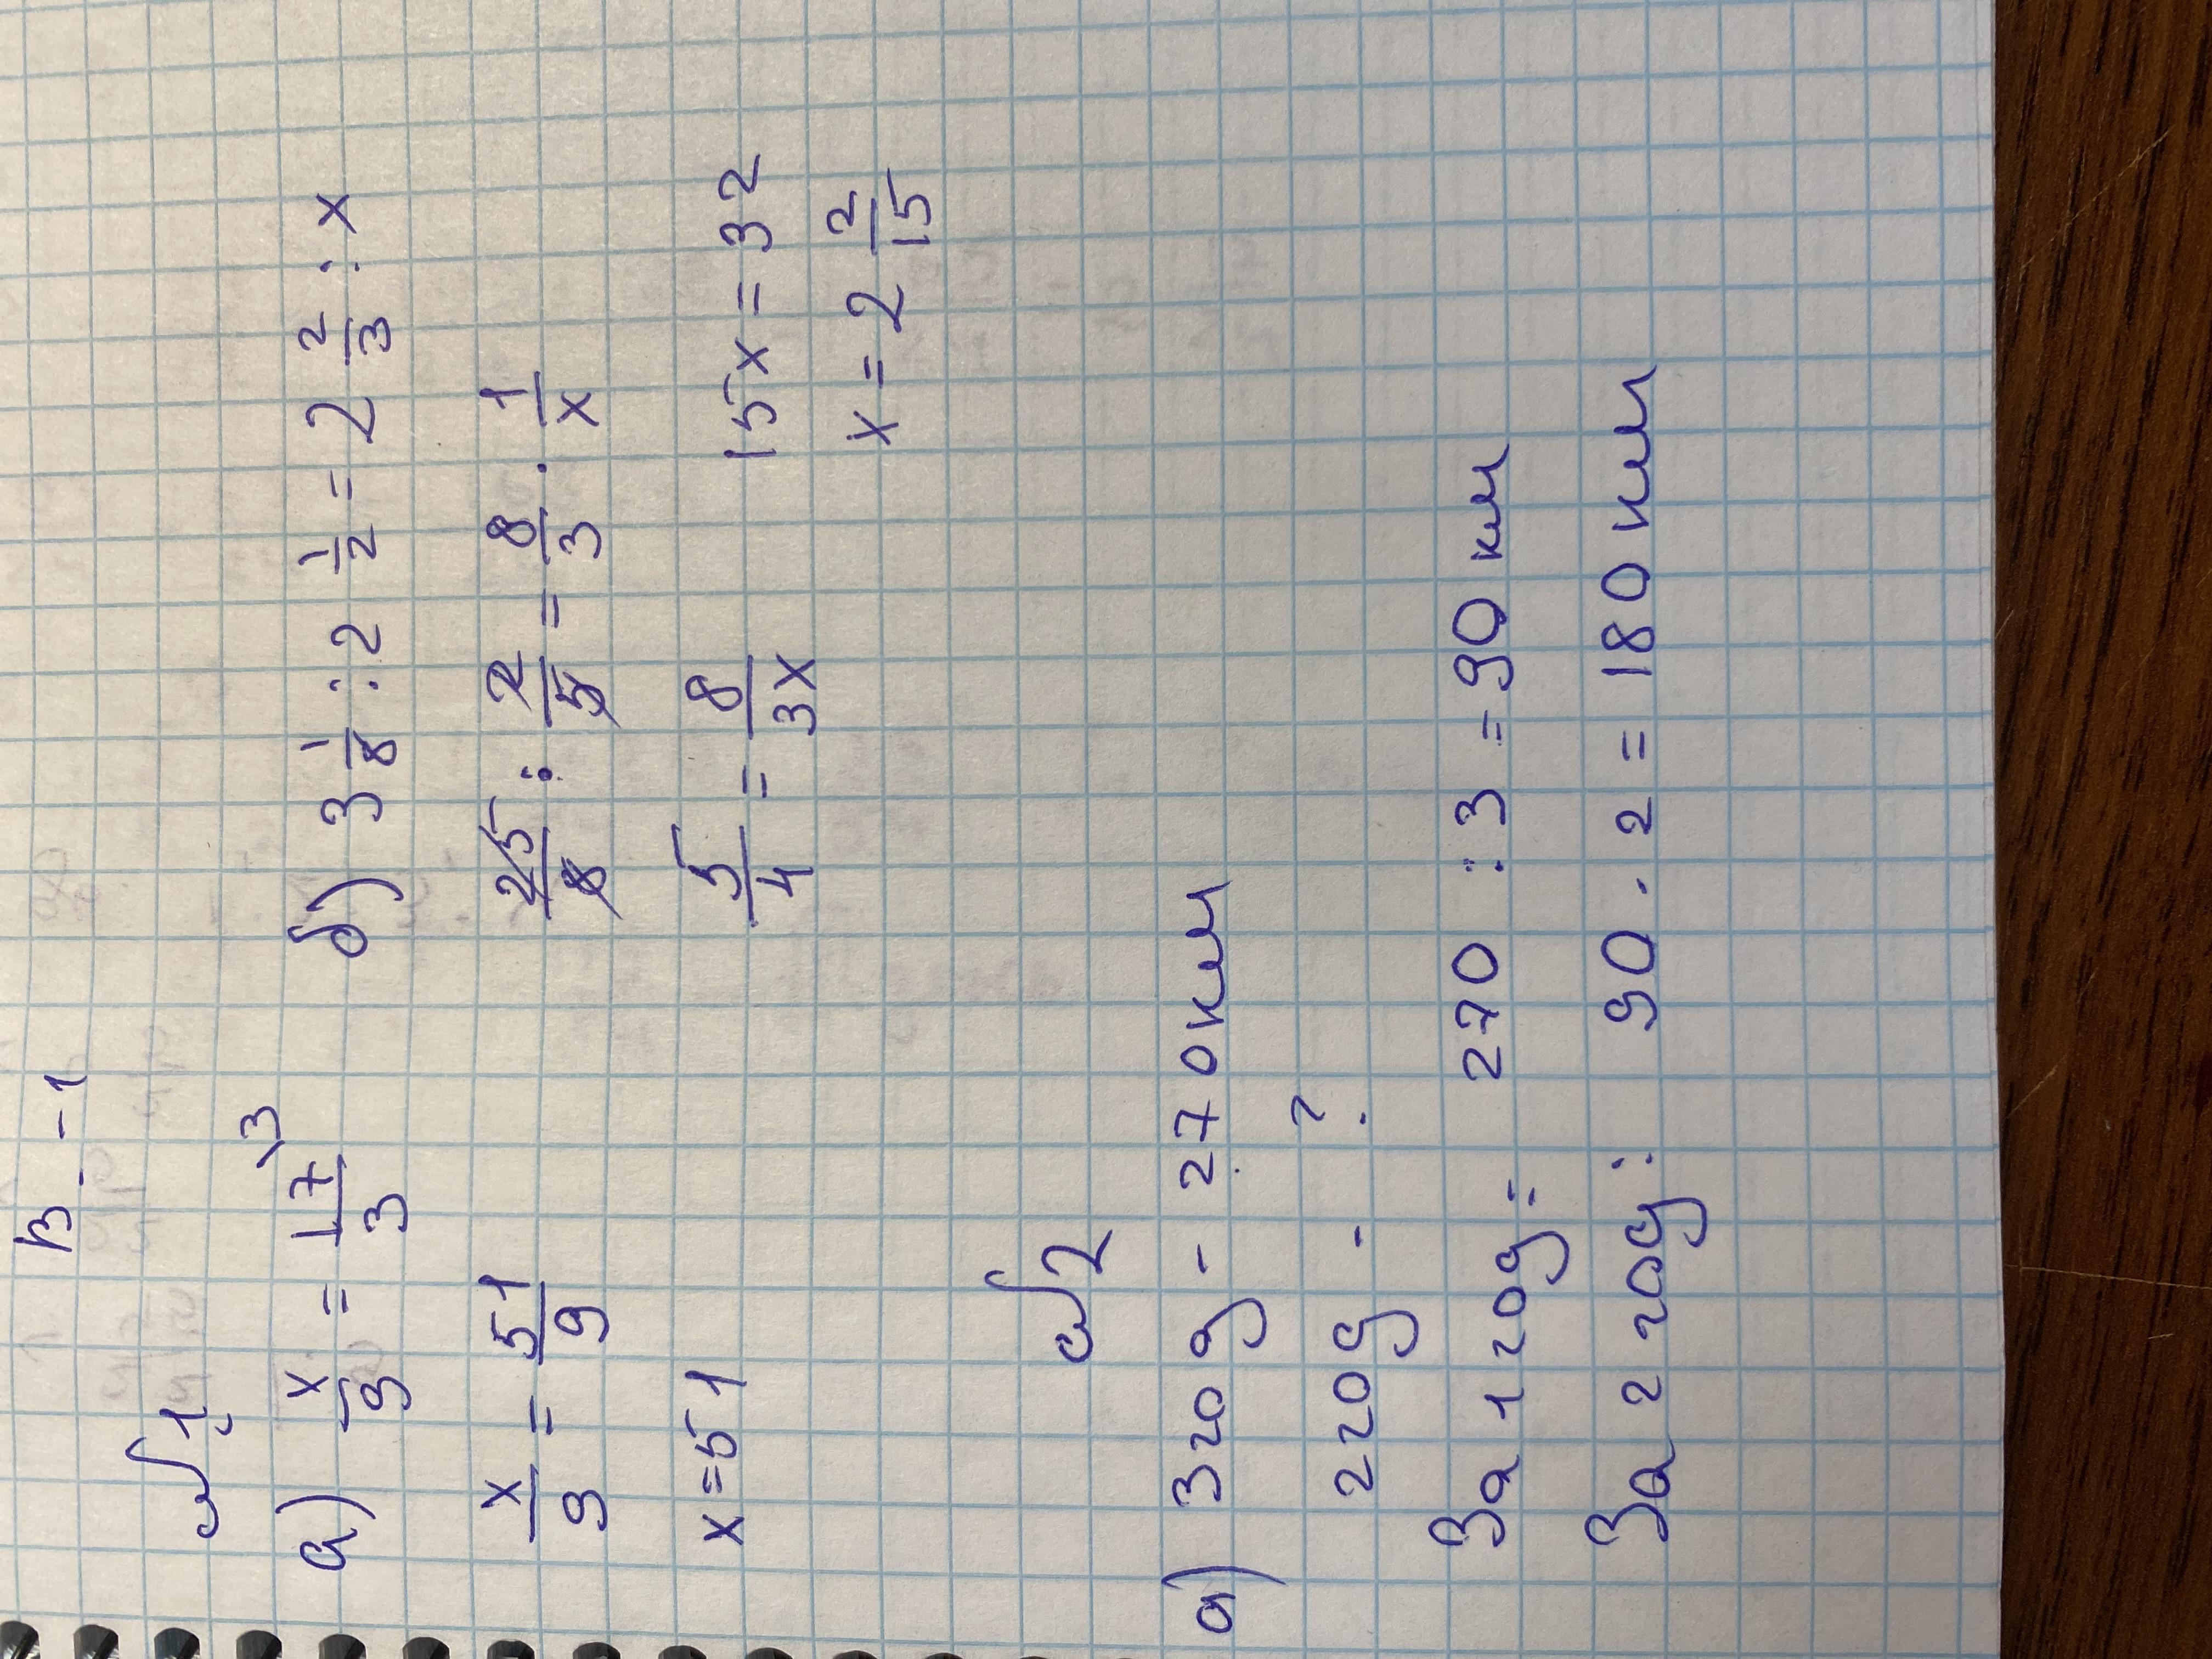 В-1
№1
а) x/9 = 17/3 \3
x/9 = 51/9
x=51
б) 3 1/8 : 2 1/2 = 2 2/3 : x
25/8 : 2/5 = 8/3 · 1/x
5/4 = 8/3x
15x = 32
x = 2 2/15
№2
а) 3 год - 270 км
2 год - ?
За 1 год: 270 : 3 = 90 км
За 2 год: 90 · 2 = 180 км